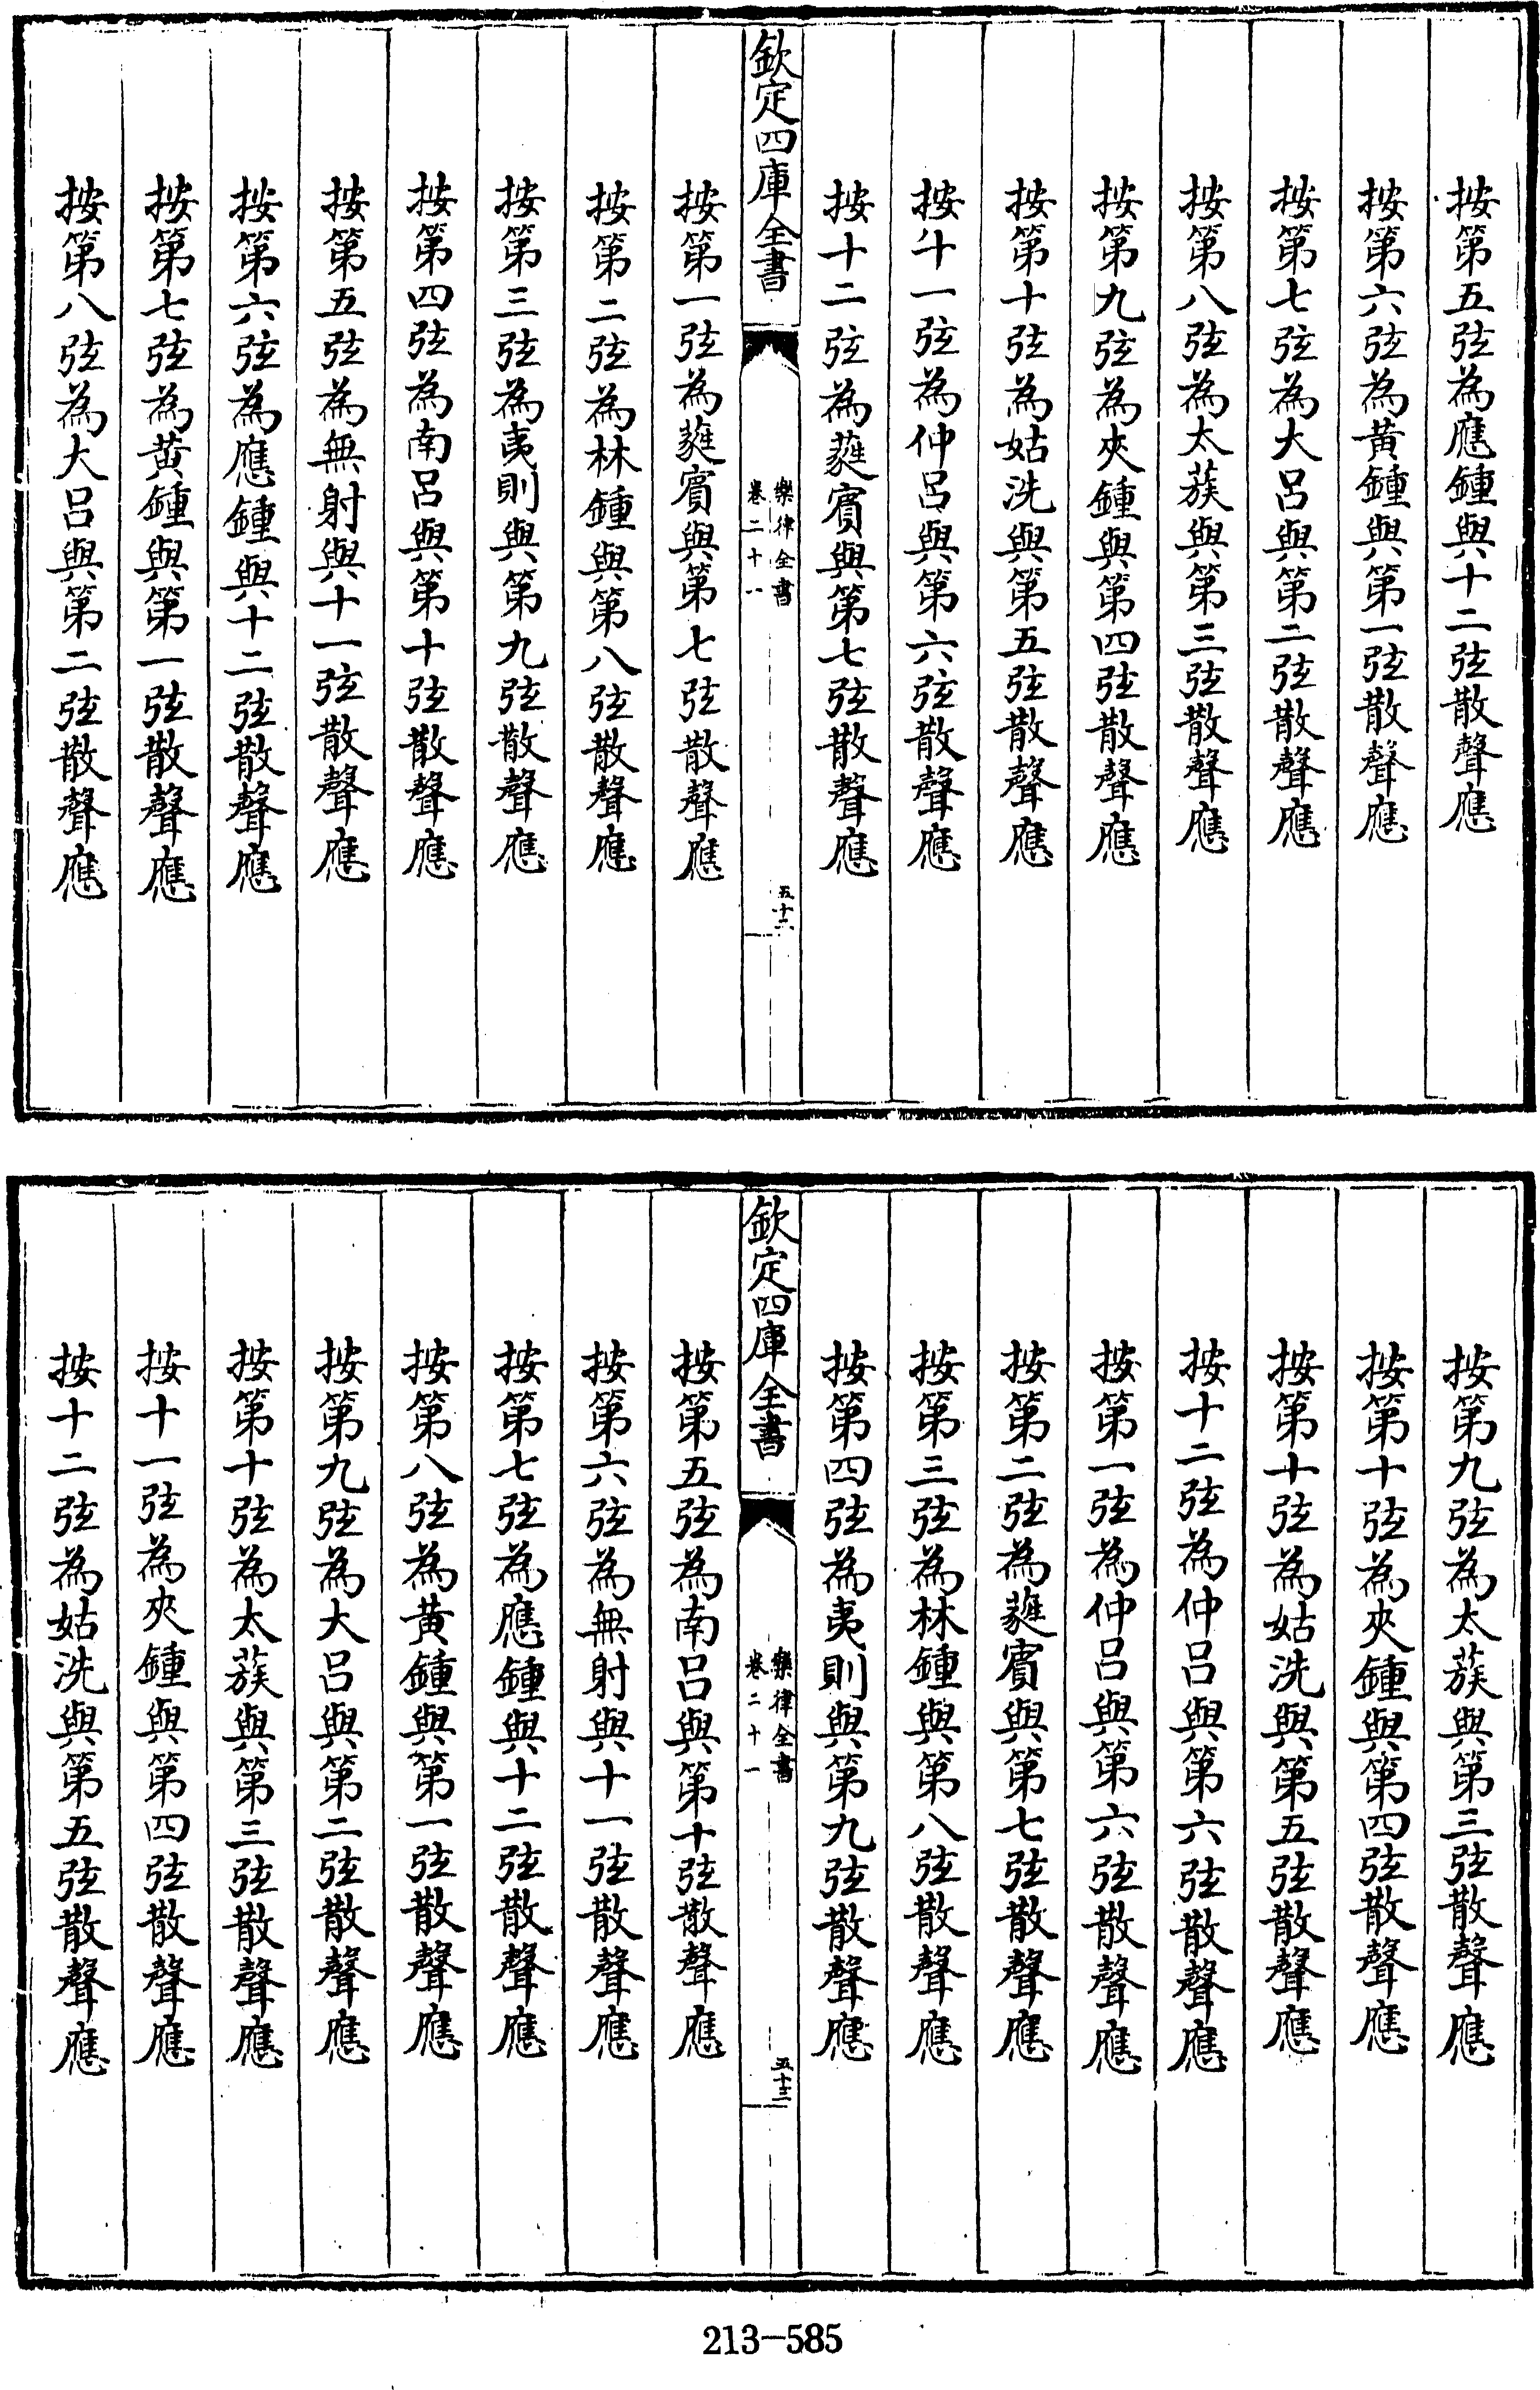 按第五弦為應鍾與十二弦散聲應
按第六弦為黃鍾與第一弦散聲應
按第七弦為大呂與第二弦散聲應
按第八弦為太蔟與第三弦散聲應
按第九弦為夾鍾與第四弦散聲應
按第十弦為姑洗與第五弦散聲應
按十一弦為仲呂與第六弦散聲應
按十二弦為蕤賓與第七弦散聲應
欽定四庫全書
樂律全書
卷二十一
五十二
按第一弦為蕤賓與第七弦散聲應
按第二弦為林鍾與第八弦散聲應
按第三弦為夷則與第九弦散聲應
按第四弦為南呂與第十弦散聲應
按第五弦為無射與十一弦散聲應
按第六弦為應鍾與十二弦散聲應
按第七弦為黃鍾與第一弦散聲應
按第八弦為大呂與第二弦散聲應
按第九弦為太蔟與第三弦散聲應
按第十弦為夾鍾與第四弦散聲應
按第十弦為姑洗與第五弦散聲應
按十二弦為仲呂與第六弦散聲應
按第一弦為仲呂與第六弦散聲應
按第二弦為蕤賓與第七弦散聲應
按第三弦為林鍾與第八弦散聲應
按第四弦為夷則與第九弦散聲應
欽定四庫全書
樂律全書
卷二十一
五十三
按第五弦為南呂與第十弦散聲應
按第六弦為無射與十一弦散聲應
按第七弦為應鍾與十二弦散聲應
按第八弦為黃鍾與第一弦散聲應
按第九弦為大呂與第二弦散聲應
按第十弦為太蔟與第三弦散聲應
按十一弦為夾鍾與第四弦散聲應
按十二弦為姑洗與第五弦散聲應
213-585